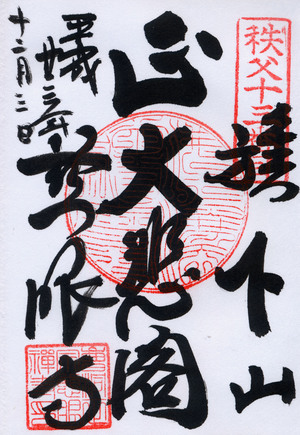 秩父十三番
旗下山
正大悲閣
慈眼寺
平成廿三年
十二月三日